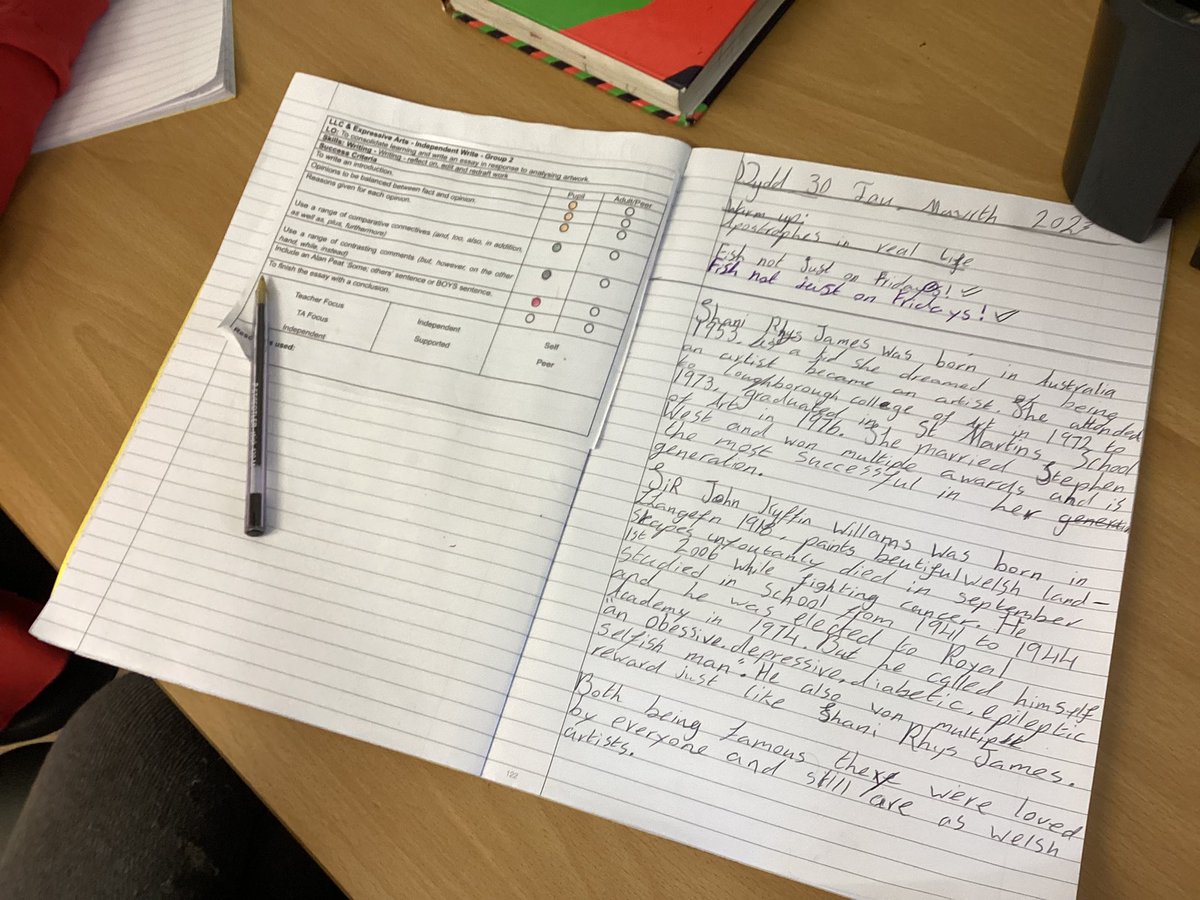 LLC & Expressive Arts - Independent Write - Group 2
LO: To consolidate learning and write an essay in response to analysing artwork.
Skills: Writing - Writing - reflect on, edit and redraft work
Success Criteria
Pupil
Adult/Peer
To write an introduction.
Opinions to be balanced between fact and opinion.
Reasons given for each opinion.
Use a range of comparative connectives (and, too, also, in addition,
as well as, plus, furthermore)
Use a range of contrasting comments (but, however, on the other
hand, while, instead)
Include an Alan Peat 'Some; others' sentence or BOYS sentence.
To finish the essay with a conclusion.
Teacher Focus
TA Focus
Independent
Independent
Supported
Self
Peer
used:
122
Dydd 30 Iau Mawrth 2023
Warm up:
Apostrophes in real life
Fish not just on Fridays! ✓
Fish not just on Fridays! ✓
Shani Rhys James was born in Australia
1953. a kid she dreamed of being
an artist became an artist. She attended
to Loughborough college of Art in 1972 to
1973, graduated in St Martins School
of Art in 1976. She married Stephen
West and won multiple awards and is
the most successful in her
generation.
SiR John Kyffin Willams was born in
Llangefn 1918, paints beutiful welsh land-
skapes unfoutancy died in september
1st 2006 while fighting cancer. He
studied in School from 1941 to 1944
and he was elected to Royal
Academy in 1974. But he called himself
"an obessive, depressive, diabetic, epileptic
selfish man". He also von multiple
reward just like Shani Rhys James.
Both being famous they were loved
by everyone and still are as welsh
artists.